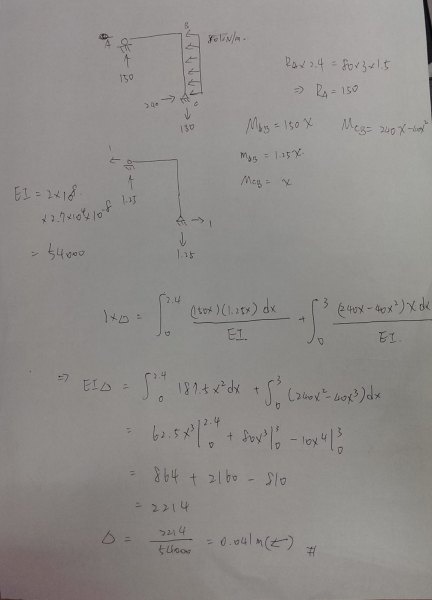 A
B
80 kN/m
150
240
C
150
R_A × 2.4 = 80 × 3 × 1.5
⇒ R_A = 150
M_AB = 150x
M_CB = 240x - 40x²
1
1.25
1
1.25
m_AB = 1.25x
m_CB = x
EI = 2×10⁸
× 2.7×10⁴×10⁻⁸
= 54000
1×Δ = ∫₀^2.4 (150x)(1.25x) dx / EI + ∫₀^3 (240x - 40x²) x dx / EI.
⇒ EIΔ = ∫₀^2.4 187.5x² dx + ∫₀^3 (240x² - 40x³) dx
= 62.5x³|₀^2.4 + 80x³|₀^3 - 10x⁴|₀^3
= 864 + 2160 - 810
= 2214
Δ = 2214 / 54000 = 0.041 m (←) #